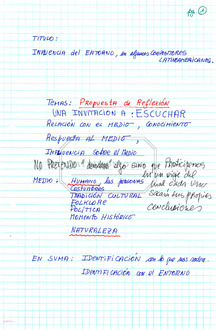 1
TITULO:
INFLUENCIA del ENTORNO, en algunos COMPOSITORES
LATINOAMERICANOS.
TEMAS: Propuesta de Reflexión
UNA INVITACION A: ESCUCHAR
RELACIÓN CON EL MEDIO, CONOCIMIENTO
Respuesta al MEDIO,
Influencia sobre el Medio
NO PRETENDO " " algo sino que Participemos
en un viaje del
MEDIO: HUMANO, las personas
cual cada uno
Costumbres
saque sus propias
TRADICIÓN CULTURAL
conclusiones
FOLKLORE
POLÍTICA
MOMENTO HISTÓRICO
NATURALEZA
EN SUMA: IDENTIFICACIÓN con lo que nos rodea.
IDENTIFICACIÓN con el ENTORNO